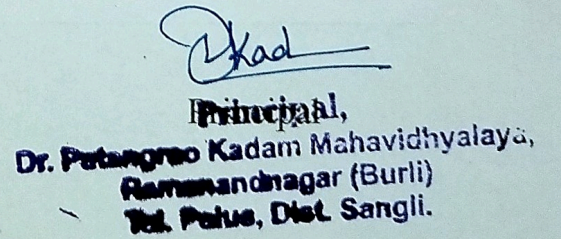 Principal,
Dr. Patangrao Kadam Mahavidhyalaya,
Ramanandnagar (Burli)
Tal. Palus, Dist. Sangli.